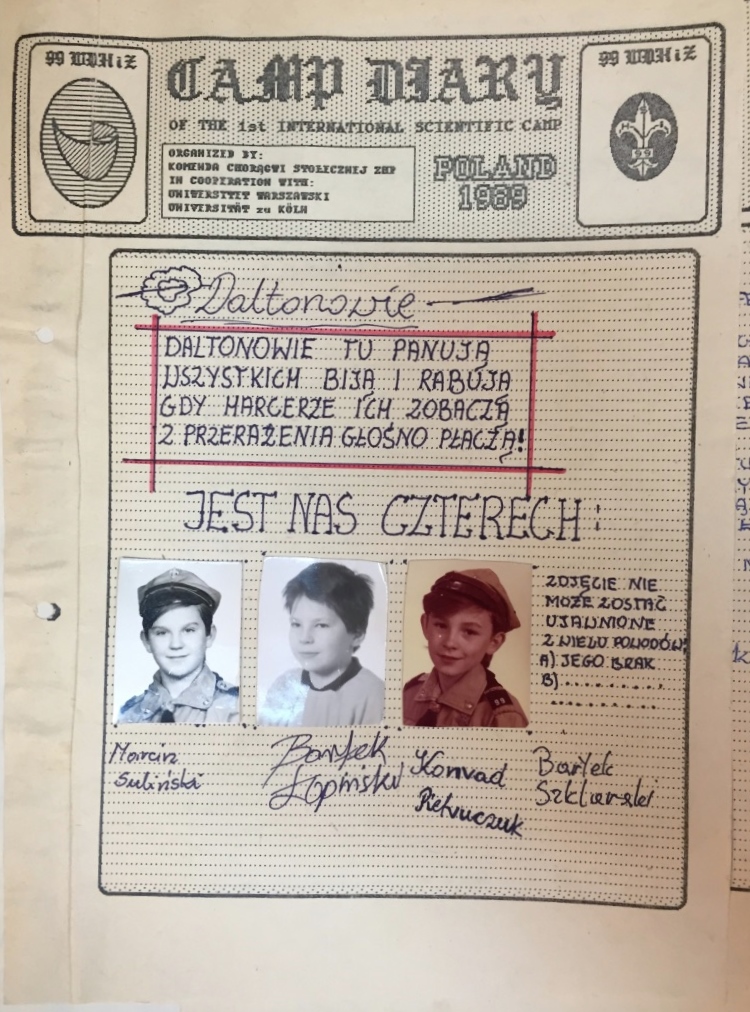 99 WDHiZ
CAMP DIARY
99 WDHiZ
OF THE 1st INTERNATIONAL SCIENTIFIC CAMP
ORGANIZED BY:
KOMENDA CHORĄGWI STOŁECZNEJ ZHP
IN COOPERATION WITH:
UNIWERSYTET WARSZAWSKI
UNIVERSITÄT zu KÖLN
POLAND
1989
99
Daltonowie
DALTONOWIE TU PANUJĄ
WSZYSTKICH BIJĄ I RABUJĄ
GDY HARCERZE ICH ZOBACZĄ
Z PRZERAŻENIA GŁOŚNO PŁACZĄ!
JEST NAS CZTERECH:
ZDJĘCIE NIE
MOŻE ZOSTAĆ
UJAWNIONE
Z WIELU POWODÓW:
A) JEGO BRAK
B) ............
............
Marcin
Suliński
Bartek
Łopiński
Konrad
Pietruczuk
Bartek
Szklarski